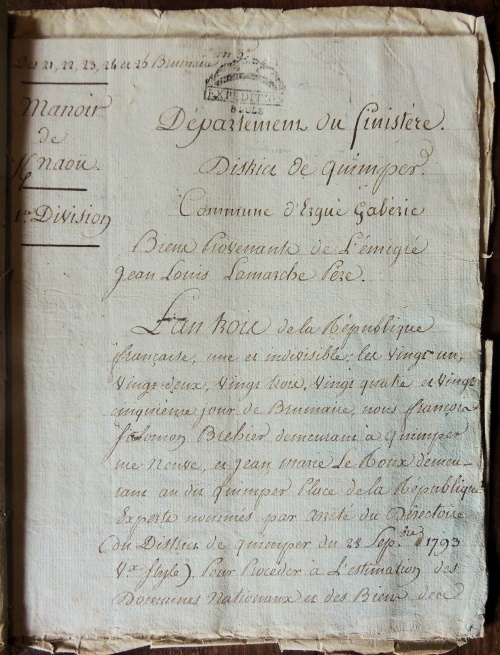 Des 21, 22, 23, 24 et 25 Brumaire
EXPEDITION
8 SOLS
Manoir
de
K/naou.
1ere Division
Département du finistére.
District de quimper
Commune d'Ergué gabéric
Bieux Provenants de L'émigré
Jean Louis Lamarche Pére.
L'an trois de la République
française, une et indivisible, les vingt un,
vingt deux, vingt trois, vingt quatre et vingt
cinquieme jour de Brumaire, nous françois
Salomon Brebier demeurant à quimper
rue Neuve, et jean marie Le Roux demeu-
rant au dit quimper Place de la République
Experts nommés par arrété du Directoire
(du District de quimper du 28 Sep.bre 1793
V.x Style), Pour Procéder à L'estimation des
Domaines Nationaux et des Biens des